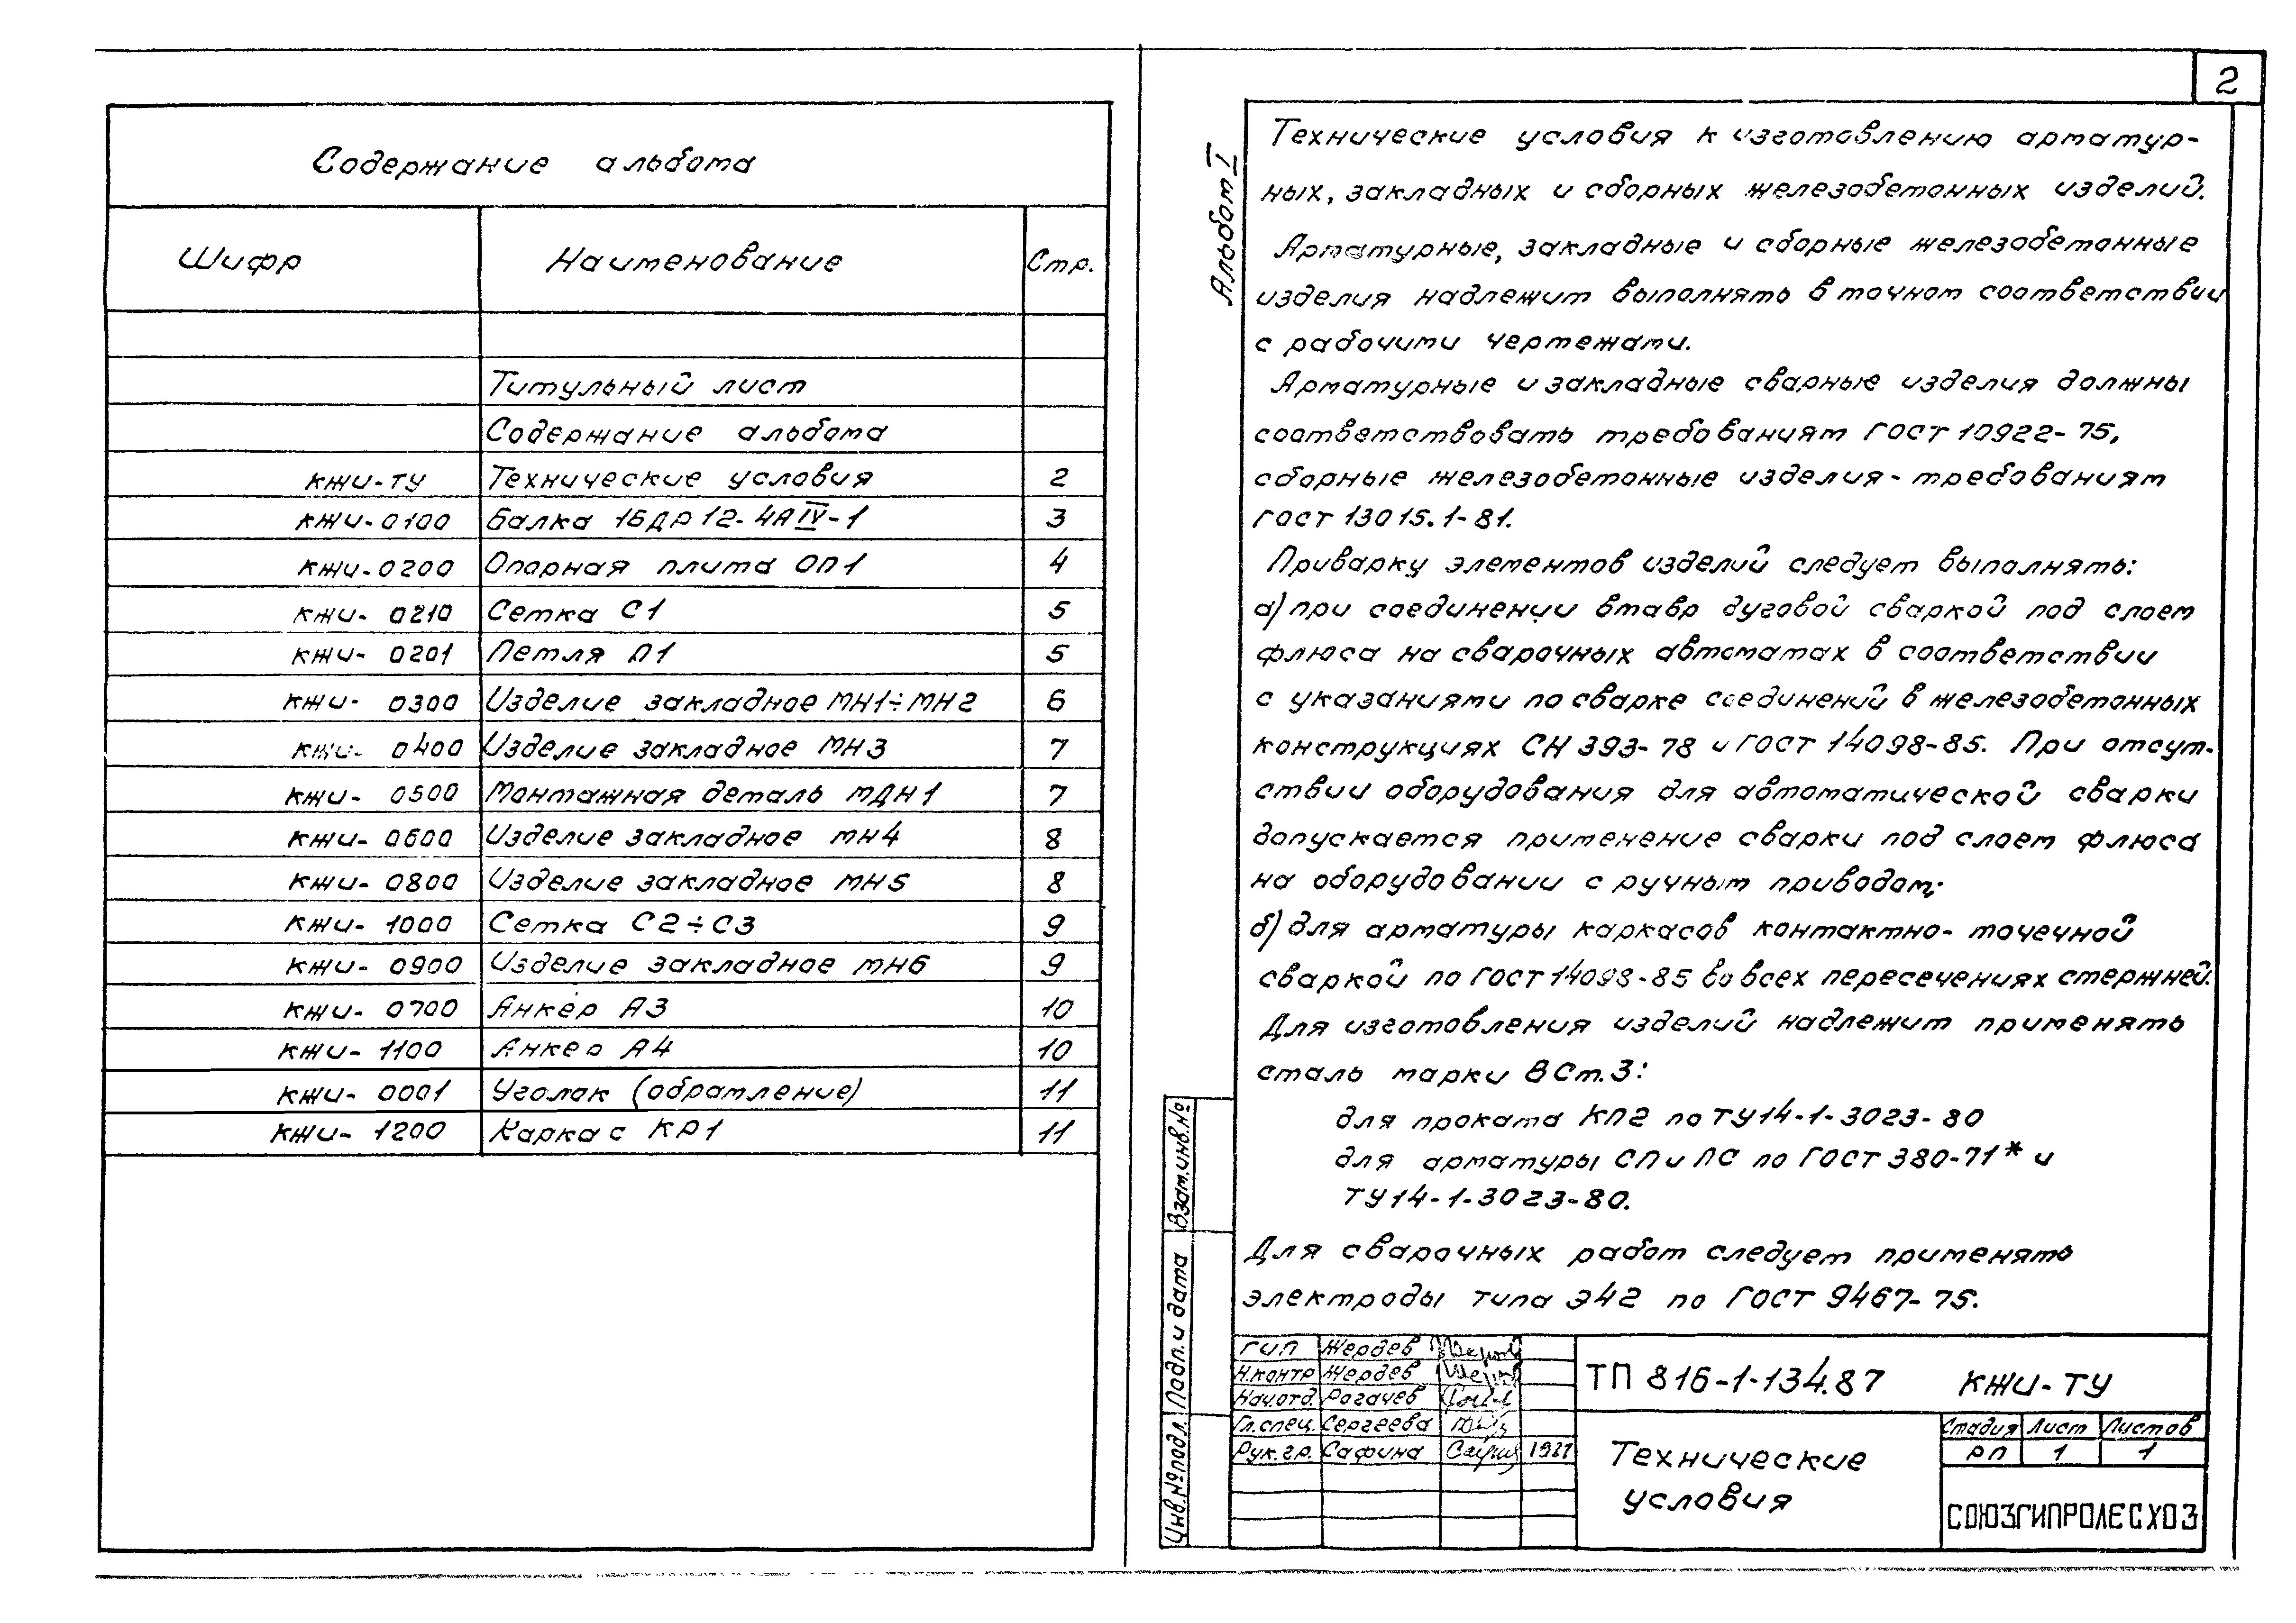 2
Содержание альбома
Шифр Наименование Стр.
Титульный лист
Содержание альбома
КЖИ-ТУ Технические условия 2
КЖИ-0100 Балка 1БДР12-4АIV-1 3
КЖИ-0200 Опорная плита ОП1 4
КЖИ-0210 Сетка С1 5
КЖИ-0201 Петля П1 5
КЖИ-0300 Изделие закладное МН1÷МН2 6
КЖИ-0400 Изделие закладное МН3 7
КЖИ-0500 Монтажная деталь МДН1 7
КЖИ-0600 Изделие закладное МН4 8
КЖИ-0800 Изделие закладное МН5 8
КЖИ-1000 Сетка С2÷С3 9
КЖИ-0900 Изделие закладное МН6 9
КЖИ-0700 Анкер А3 10
КЖИ-1100 Анкер А4 10
КЖИ-0001 Уголок (обрамление) 11
КЖИ-1200 Каркас КР1 11
Альбом I
Технические условия к изготовлению арматур-
ных, закладных и сборных железобетонных изделий.
Арматурные, закладные и сборные железобетонные
изделия надлежит выполнять в точном соответствии
с рабочими чертежами.
Арматурные и закладные сварные изделия должны
соответствовать требованиям ГОСТ 10922-75,
сборные железобетонные изделия - требованиям
ГОСТ 13015.1-81.
Приварку элементов изделий следует выполнять:
а) при соединении втавр дуговой сваркой под слоем
флюса на сварочных автоматах в соответствии
с указаниями по сварке соединений в железобетонных
конструкциях СН 393-78 и ГОСТ 14098-85. При отсут-
ствии оборудования для автоматической сварки
допускается применение сварки под слоем флюса
на оборудовании с ручным приводом;
б) для арматуры каркасов контактно-точечной
сваркой по ГОСТ 14098-85 во всех пересечениях стержней.
Для изготовления изделий надлежит применять
сталь марки ВСт.3:
для проката КП2 по ТУ14-1-3023-80
для арматуры СП и ПС по ГОСТ 380-71* и
ТУ14-1-3023-80.
Для сварочных работ следует применять
электроды типа Э42 по ГОСТ 9467-75.
Взам.инв.№
Подп.и дата
Инв.№подл.
ГИП Жердев
Н.контр Жердев
Нач.отд. Рогачев
Гл.спец. Сергеева
Рук.гр. Сафина 1987
ТП 816-1-134.87 КЖИ-ТУ
Технические
условия
Стадия Лист Листов
РП 1 1
СОЮЗГИПРОЛЕСХОЗ